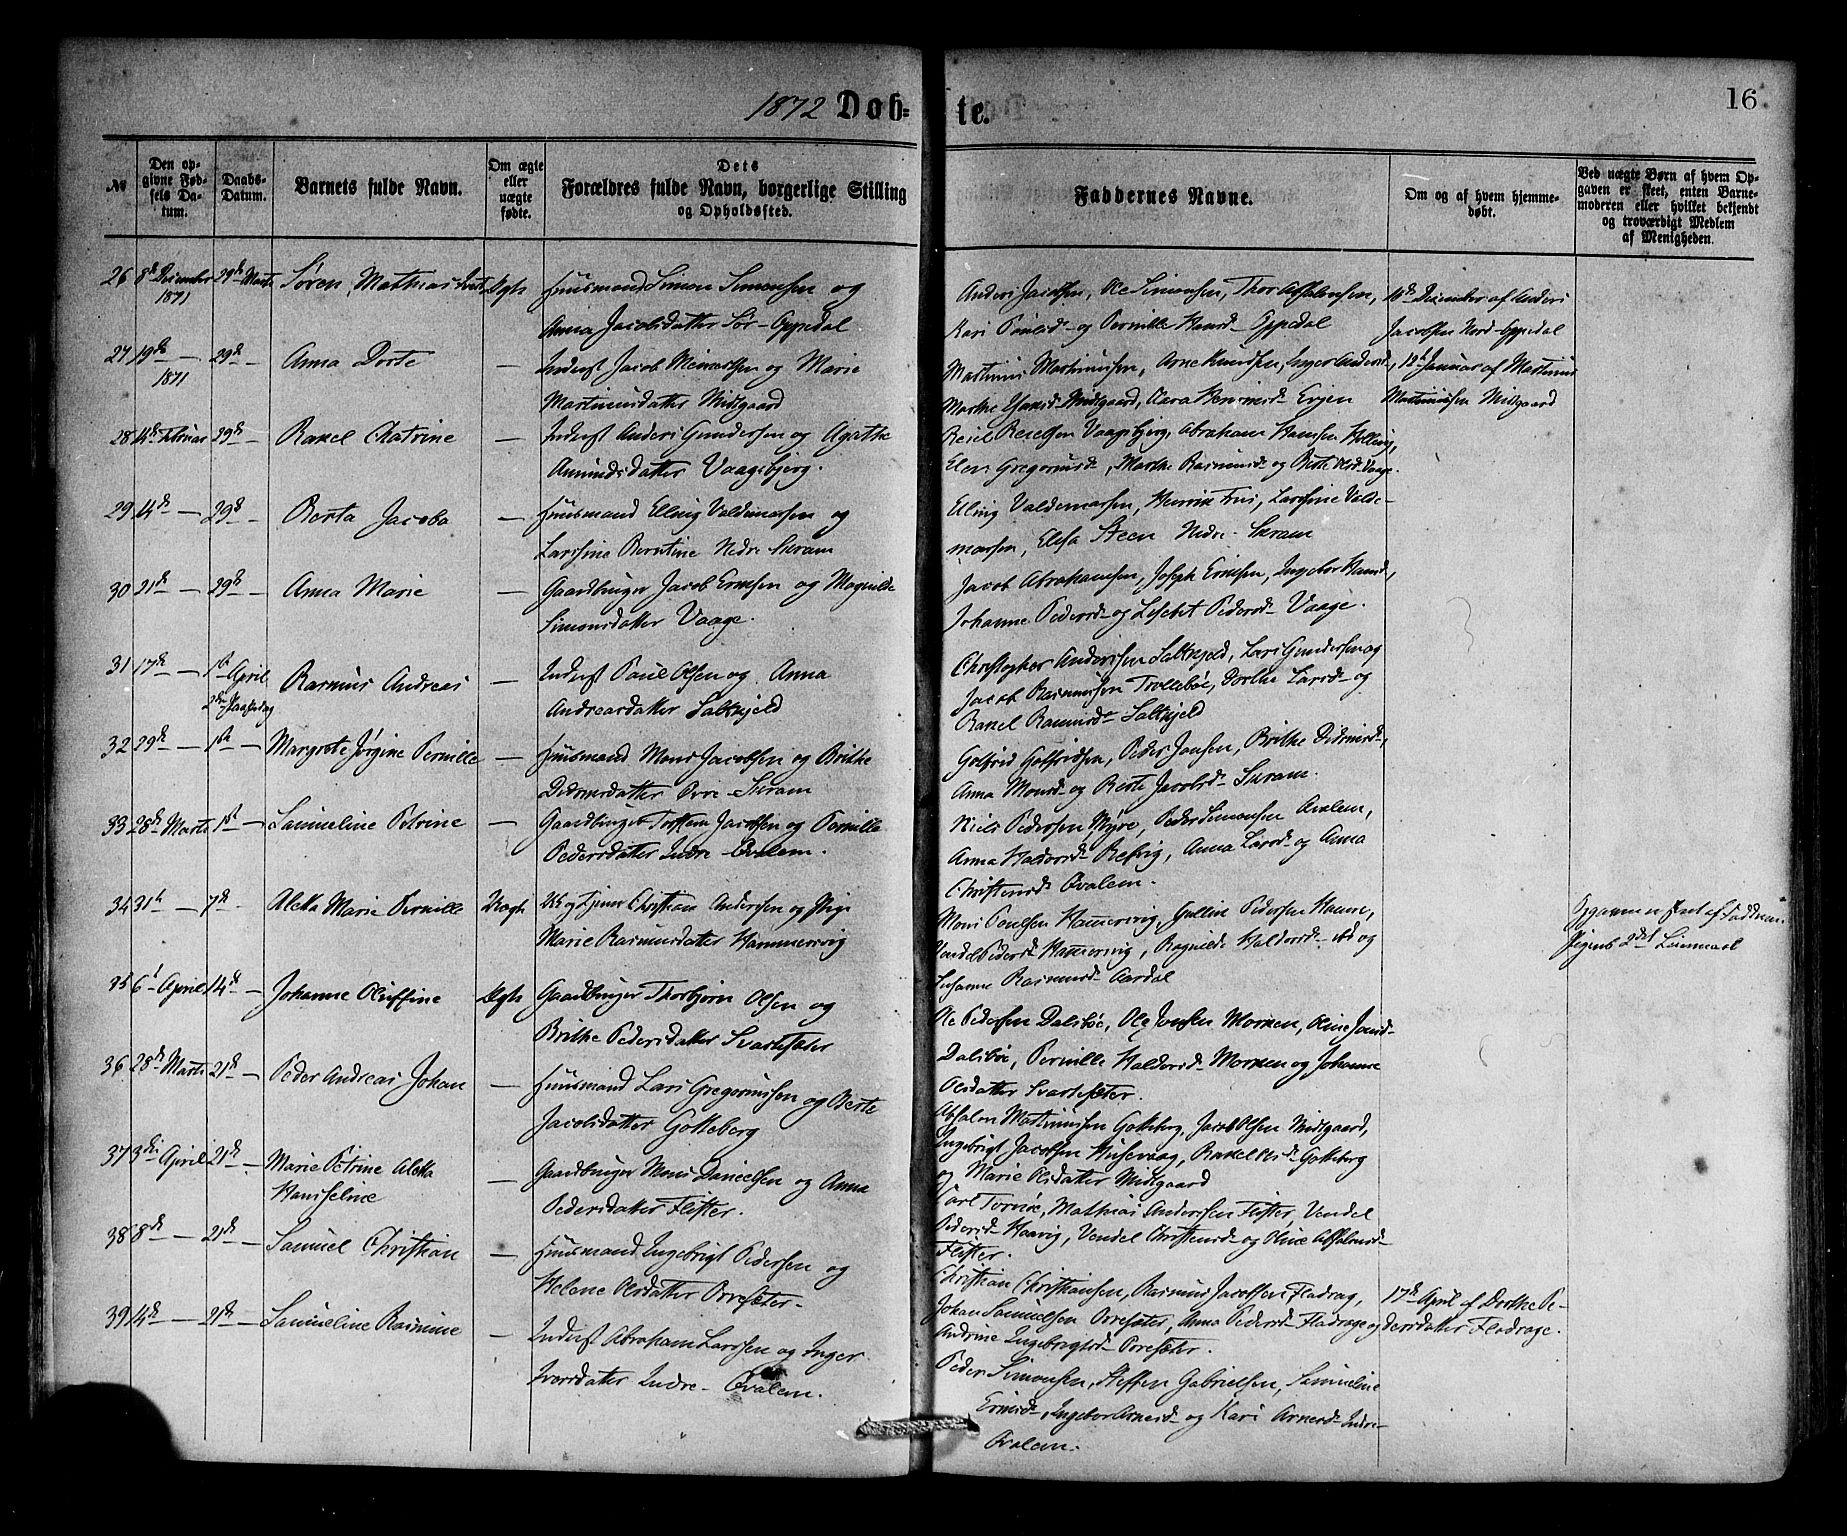 1872 Døb- te. 16
№
Den op-
givne Fød-
sels Da-
tum.
Daabs-
Datum.
Barnets fulde Navn.
Om ægte
eller
uægte
fødte.
Dets
Forældres fulde Navn, borgerlige Stilling
og Opholdssted.
Faddernes Navne.
Om og af hvem hjemme-
døbt.
Ved uægte Børn af hvem Op-
gaven er skeet, enten Barne-
moderen eller hvilket bekjendt
og troværdigt Medlem
af Menigheden.
26 8de December 29de Marts Søren Mathias Ægte Huusmand Simon Simonsen og
1871 Anna Jacobsdatter Sør-Oppedal
Anders Jacobsen, Ole Simonsen, Thor Absalonsen, 10de December af Anders
Kari Poulsd. og Pernille Hansd. Oppedal Jacobsen Nord-Oppedal
27 19de — 29de — Anna Dorte — Inderst Jacob og Marie
1871 Martinusdatter Midtgaard
Martinus Martinussen, Arne Knudsen, Inger Andersd., 12te Januar af Martinus
Marthe Midtgaard, Erijen Martinussen Midtgaard
28 4de Februar 29de — Rakel Catrine — Inderst Anders Gundersen og Agathe
Amundsdatter Vaagsbjerg.
Reiel Reielsen Vaagsbjerg, Abraham Hansen
Elen Gregoriusd., Marthe Rasmusd. og Berte Olsd. Vaage.
29 4de — 29de — Berta Jacoba — Huusmand Elling Valdemarsen og
Larsina Berntine Nedre-Skram
Elling Valdemarsen, Henrik Friis, Larsine Valde-
marsen, Elisa Steen Nedre-Skram
30 21de — 29de — Anna Marie — Gaardbruger Jacob Ernsen og Magnilde
Simonsdatter Vaage.
Jacob Abrahamsen, Joseph Ernsen, Ingebor Hansd.,
Johanne Pedersd. og Lisebet Pedersd. Vaage.
31 17de — 1ste April Rasmus Andreas — Inderst Poul Olsen og Anna
2den Paaskedag Andreasdatter Saltkjeld
Christopher Andersen Saltkjeld, Lars Gundersen og
Jacob Rasmussen Trollebøe, Dorthe Larsd. og
Rakel Rasmusd. Saltkjeld
32 29de — 1ste — Margrete Jørgine Pernille — Huusmand Mons Jacobsen og Brithe
Didriksdatter Øvre-Skram
Golfrid Golfridsen, Peder Jensen, Brithe Didriksd.,
Anna Monsd. og Berte Jacobsd. Skram.
33 28de Marts 1ste — Samueline Petrine — Gaardbruger Torstein Jacobsen og Pernille
Pedersdatter Indre-Qvalem.
Niels Pedersen Myre, Peder Simonsen Qvalem,
Anna Haldorsd. Refvig, Anna Larsd. og Anna
Christensd. Qvalem.
34 31te — 7de — Aletta Marie Pernille Uægte Christian Andersen og Pige
Marie Rasmusdatter Hammersvig
Mons Poulsen Hammersvig, Gullik Pedersen Hamre,
Vendel Pedersd. Hammersvig, Ragnilde Haldorsd. og
Susanne Rasmusd. Aardal
Opgaven er skeet af Fadderne.
Pigens 2det Leiermaal
35 6te April 14de — Johanne Oluffine Ægte Gaardbruger Thorbjørn Olsen og
Brithe Pedersdatter Svartesæter
Ole Pedersen Dalsbøe, Ole Jensen Morken, Oline Jonsd.
Dalsbøe, Pernille Haldorsd. Morken og Johanne
Olsdatter Svartesæter.
36 28de Marts 21de — Peder Andreas Johan — Huusmand Lars Gregoriussen og Berte
Jacobsdatter Gotteberg
Absalon Martinussen Gotteberg, Jacob Olsen Midtgaard,
Ingebrigt Jacobsen Husevaag, Rakel Olsd. Gotteberg
og Marie Olsdatter Midtgaard
37 3die April 21de — Marie Petrine Aletta — Gaardbruger Mons Danielsen og Anna
Hansseline Pedersdatter Flister.
Carl Tornøe, Mathias Andersen Flister, Vendel
Pedersd. Haavig, Vendel Christensd. og Oline Absalonsd.
Flister.
38 8de — 21de — Samuel Christian — Huusmand Ingebrigt Pedersen og
Helene Olsdatter Orresæter.
Christian Christiansen, Rasmus Jacobsen Fladrage, 17de April af Dorthe Pe-
Johan Samuelsen Orresæter, Anna Pedersd. Fladrage og dersdatter Fladrage.
Andrine Ingebrigtsd. Orresæter.
39 4de — 21de — Samueline Rasmine — Inderst Abraham Larsen og Inger
Iversdatter Indre-Qvalem.
Peder Simonsen, Steffen Gabrielsen, Samueline
Ernsd., Ingebor Arnesd. og Kari Arnesd. Indre
Qvalem.